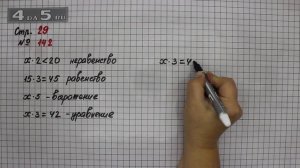 4 DA 5.RU
Стр. 29
№ 142
x · 2 < 20 неравенство
15 · 3 = 45 равенство
x · 5 - выражение
x · 3 = 42 - уравнение
x · 3 = 4